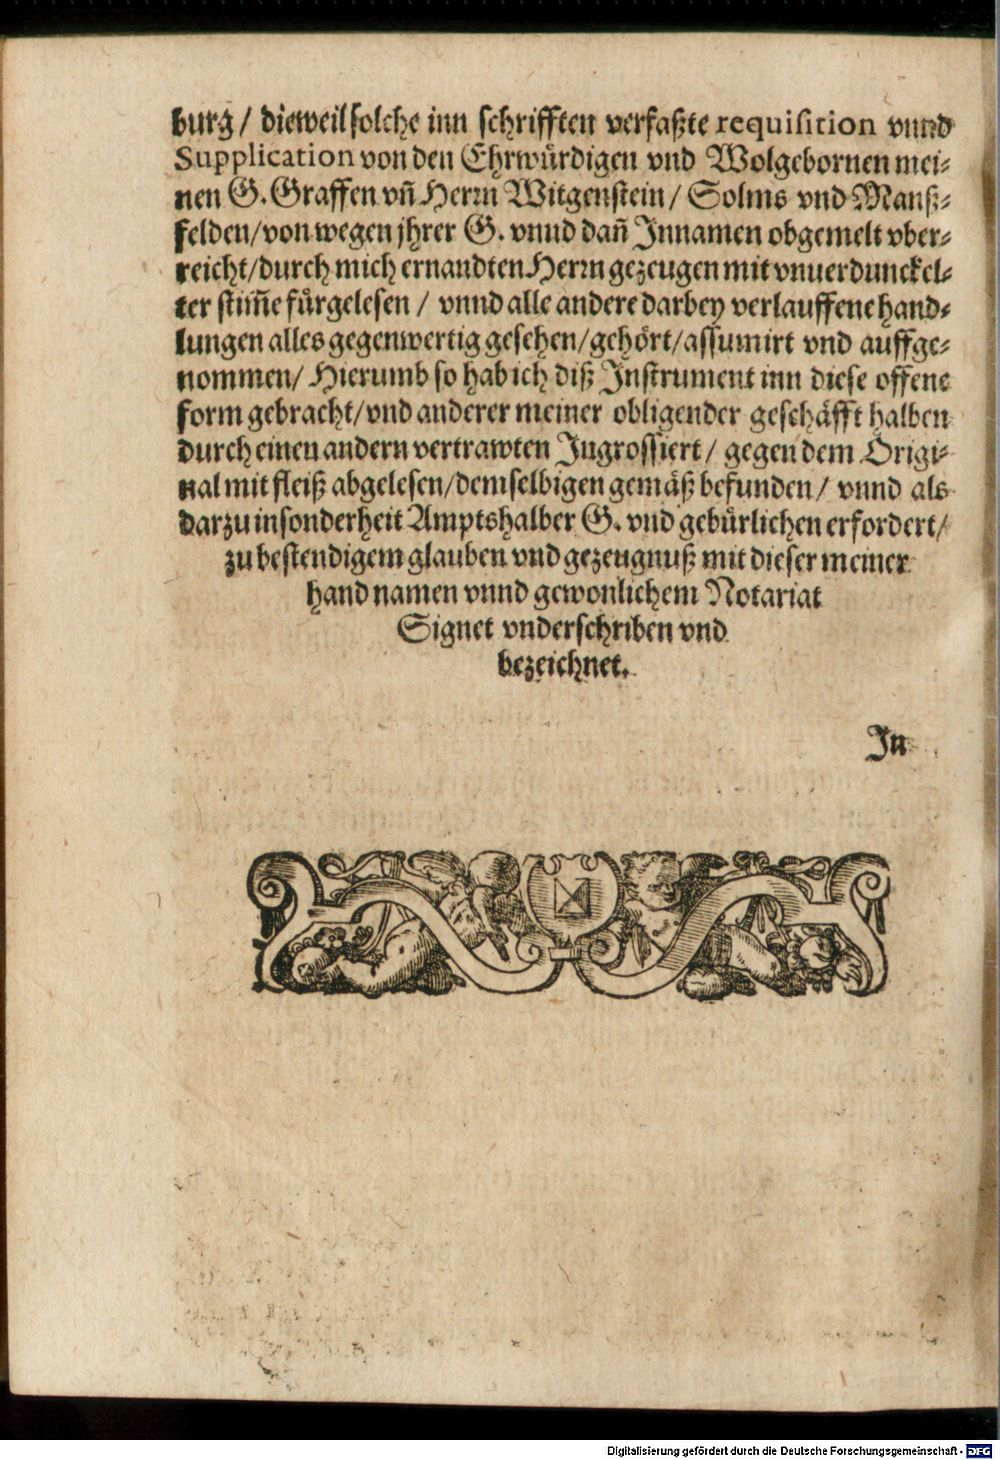 burg / dieweil solche inn schrifften verfaßte requisition vnnd
Supplication von den Ehrwürdigen vnd Wolgebornen mei⸗
nen G. Graffen vñ Herrn Witgenstein / Solms vnd Manß⸗
felden / von wegen jhrer G. vnnd dañ Innamen obgemelt vber⸗
reicht / durch mich ernandten Herrn gezeugen mit vnuerdunckel⸗
ter stim̃e fürgelesen / vnnd alle andere darbey verlauffene hand⸗
lungen alles gegenwertig gesehen / gehört / assumirt vnd auffge⸗
nommen / Hierumb so hab ich diß Instrument inn diese offene
form gebracht / vnd anderer meiner obligender geschäfft halben
durch einen andern vertrawten Ingrossiert / gegen dem Origi⸗
nal mit fleiß abgelesen / demselbigen gemäß befunden / vnnd als
darzu insonderheit Amptshalber G. vnd gebürlichen erfordert /
zu bestendigem glauben vnd gezeugnuß mit dieser meiner
hand namen vnnd gewonlichem Notariat
Signet vnderschriben vnd
bezeichnet.
In
Digitalisierung gefördert durch die Deutsche Forschungsgemeinschaft - DFG